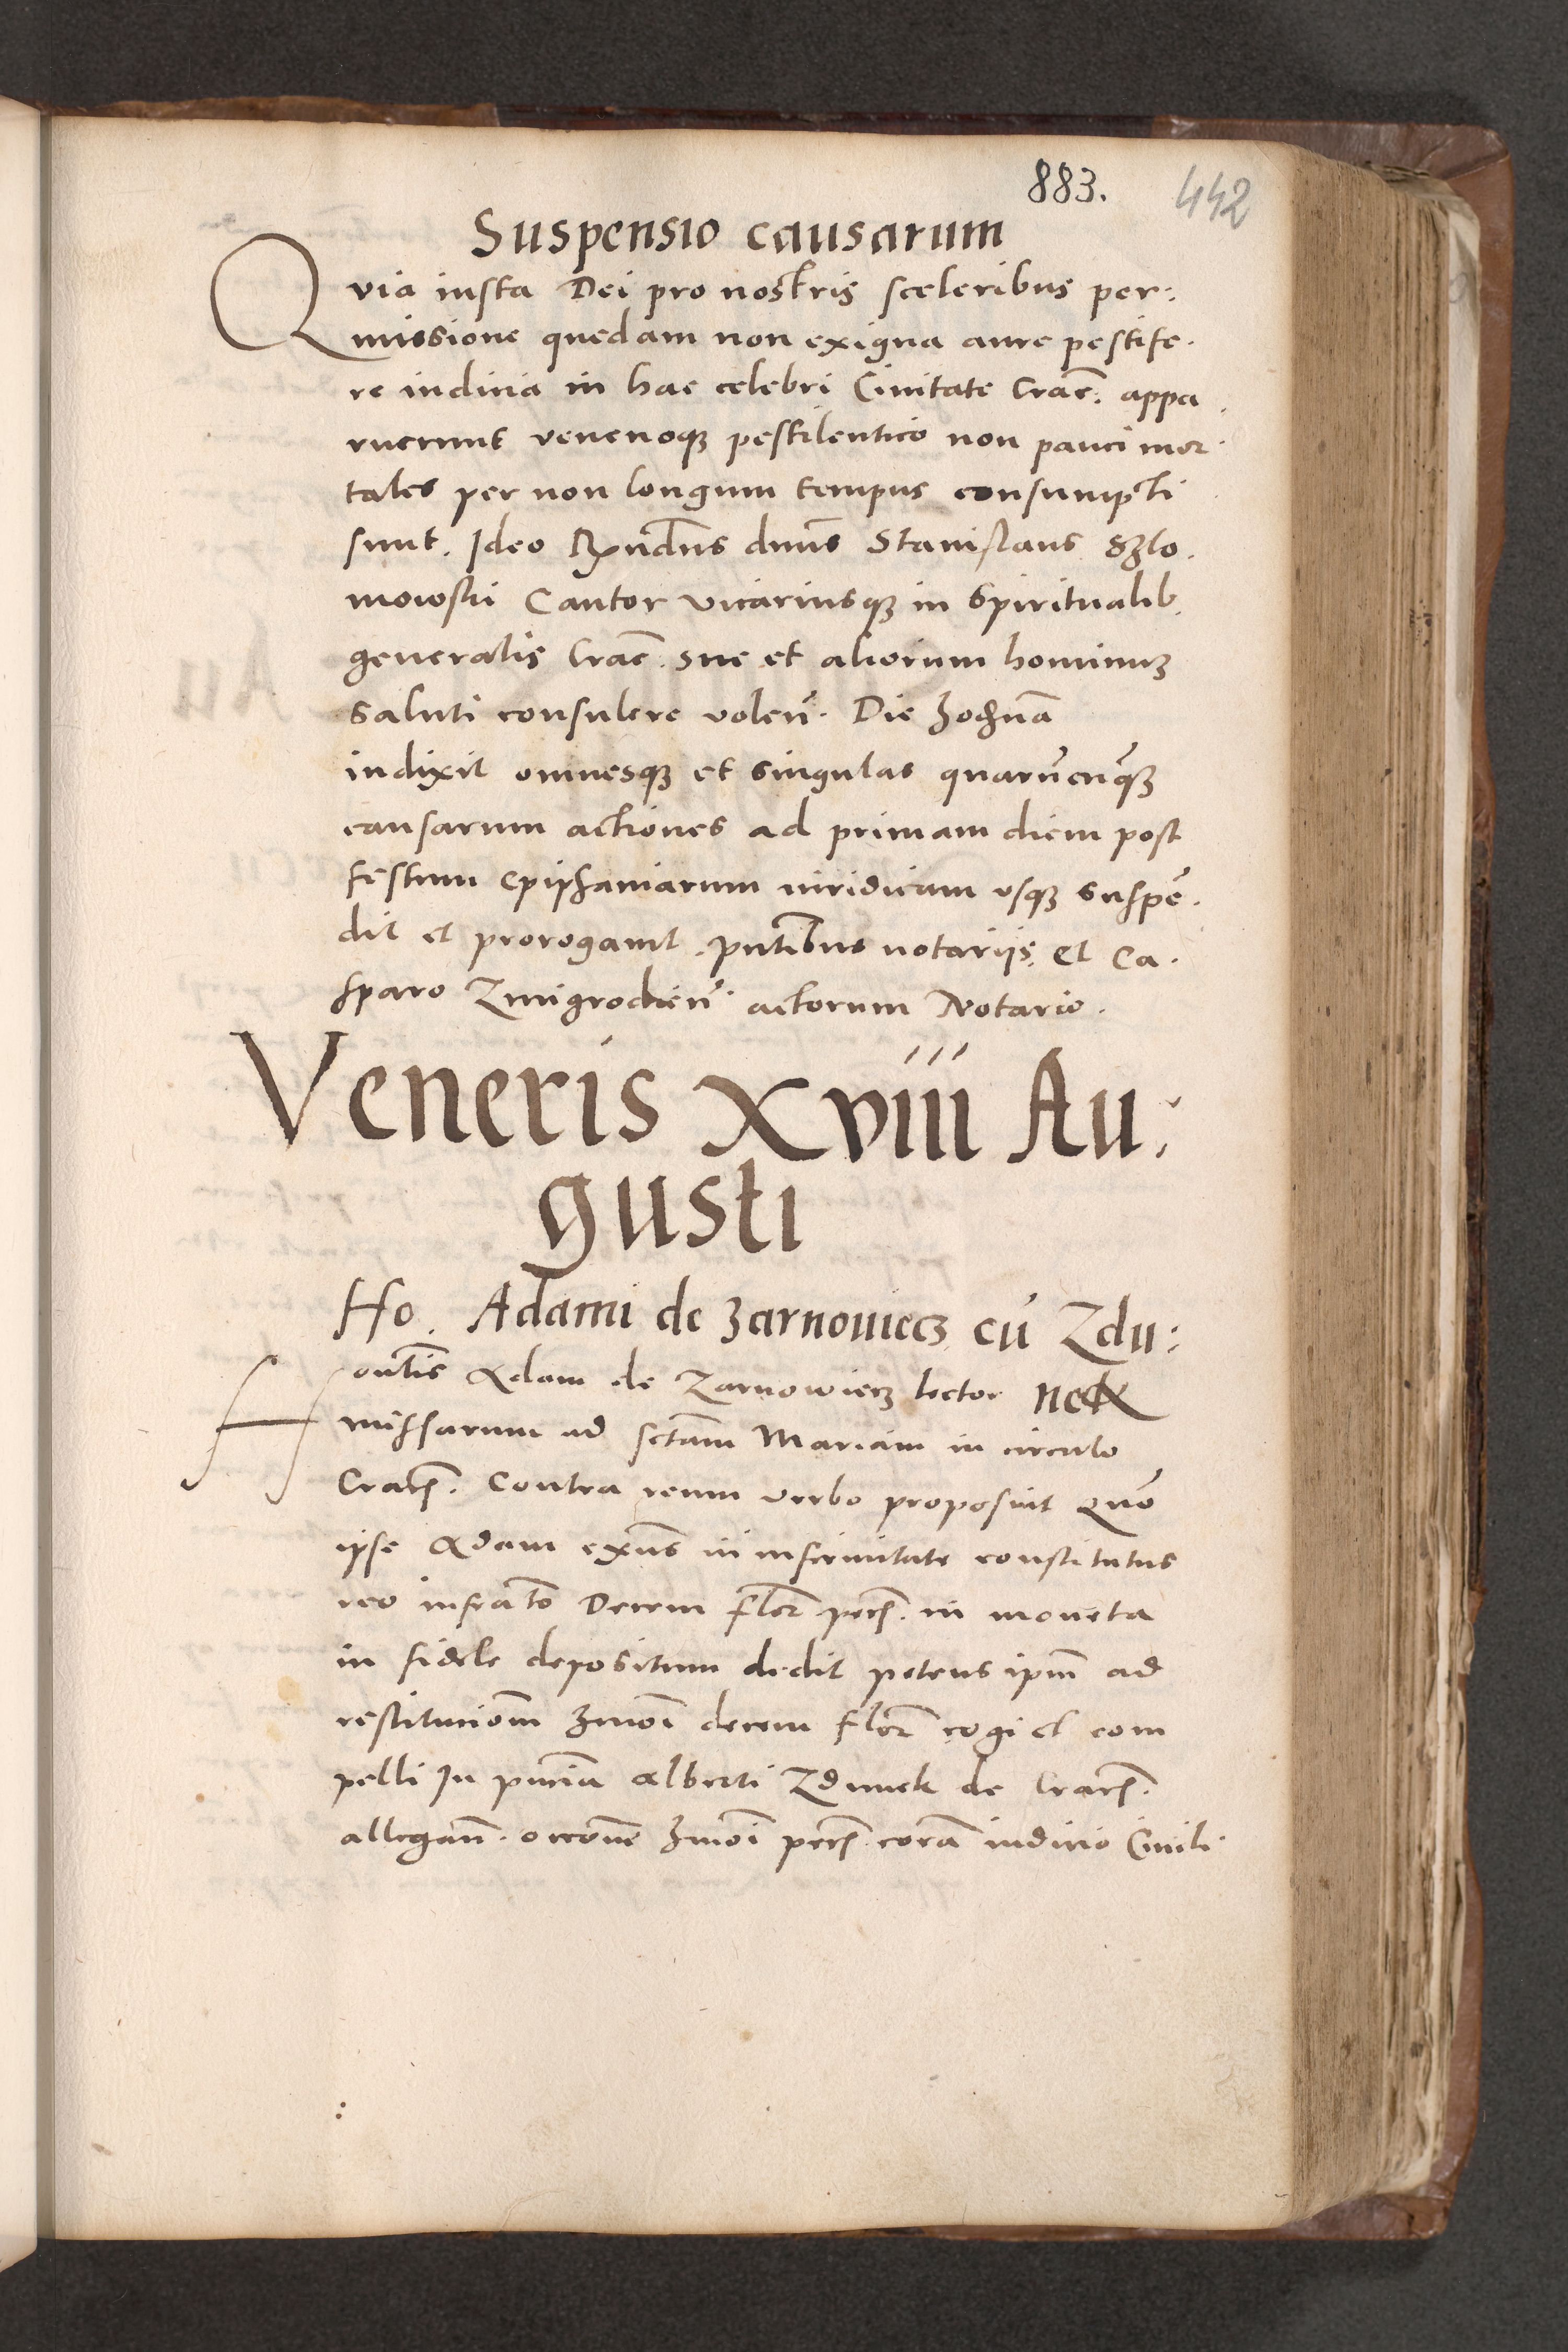 883. 442
Suspensio causarum
Quia iusta Dei pro nostris sceleribus per:
missione quedam non exigua aure pestife.
re indicia in hac celebri Ciuitate Crac̄. appa
ruerunt venenoqꝫ pestilentico non pauci mor
tales per non longum tempus consumpti
sunt. Ideo Rx̄ndus dn̄us Stanislaus Szlo.
mowski Cantor vicariusqꝫ in Spiritualib.
generalis Crac̄. sue et aliorum hominuꝫ
saluti consulere volen̄. Die
indixit omnesqꝫ et singulas quarūcūqꝫ
causarum actiones ad primam diem post
festum epiphaniarum iuridicam vsqꝫ suspē.
dit et prorogauit. pn̄tibus notariis. Et Ca.
sparo Zmigrodien̄. actorum Notario.
Veneris xviii Au:
gusti
Ho. Adami de Zarnowiecz cū Zdu:
nek
Hon̄tis Adam de Zarnowiecz lector
missarum ad sctam Mariam in circulo
Crac̄. Contra reum verbo proposuit Quō
ipse Adam ex̄ns in infirmitate constitutus
reo infrato Decem flor pec̄. in moneta
in fidele depositum dedit petens ipm̄ ad
restitucionē hmōi decem flor cogi et com
pelli In pn̄cia Alberti Zdunek de Crac̄.
allegan̄. occōne hmōi pec̄. corā iudicio Ciuili.